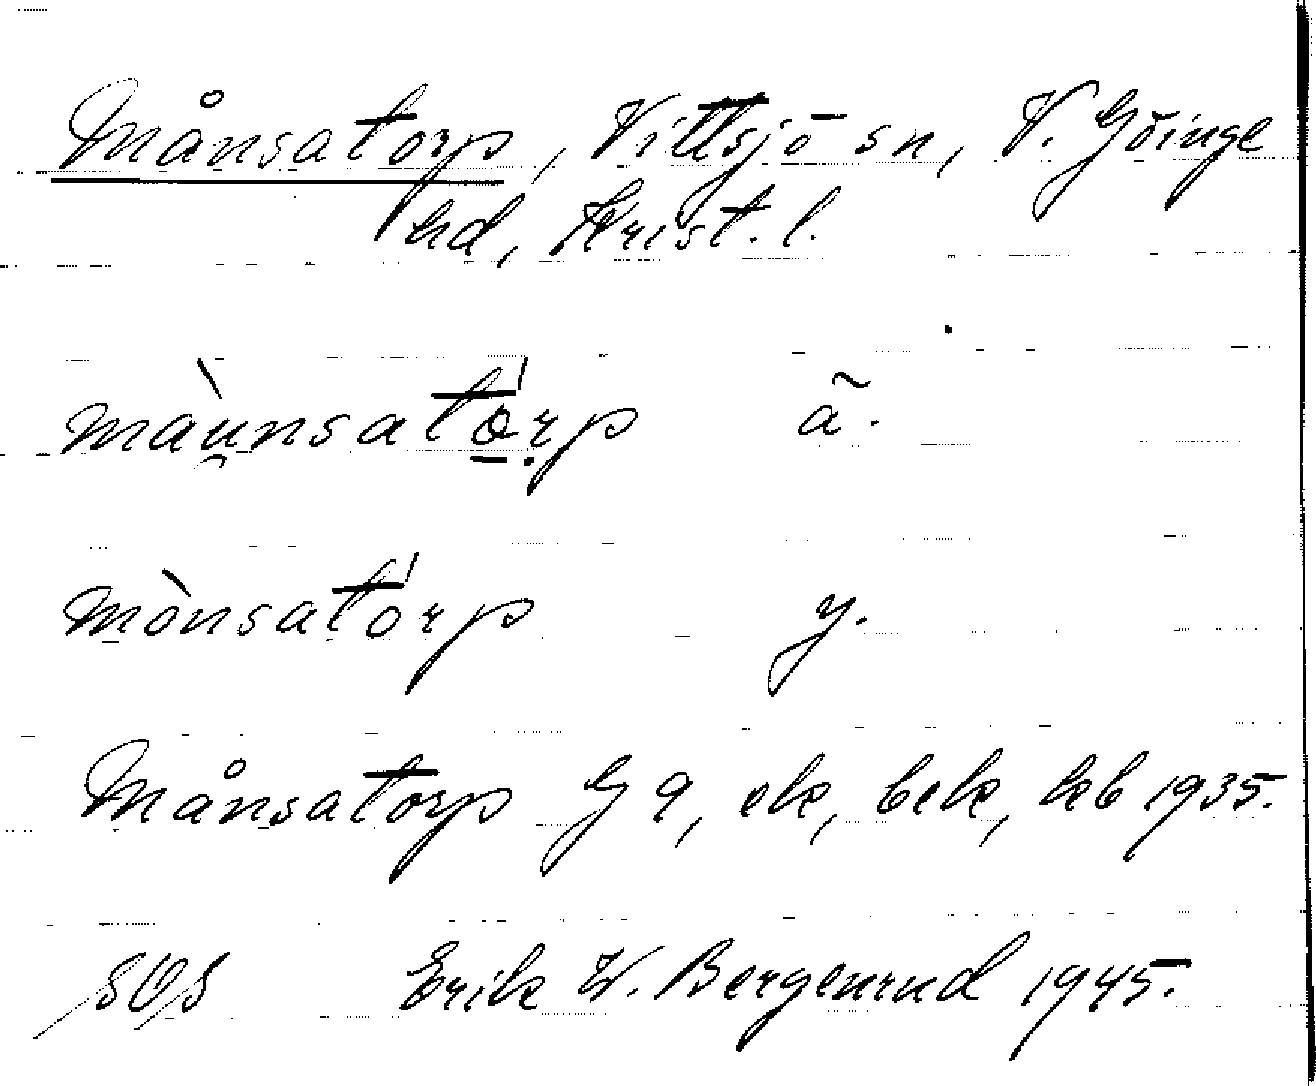 Månsatorp, Vittsjö sn, V. Göinge
hd, Krist. l.
màu̯nsató̱ṛp ã.
mònsatórp y.
Månsatorp G 9, ek, bek, kb 1935.
SOS Erik W. Bergenrud 1945.